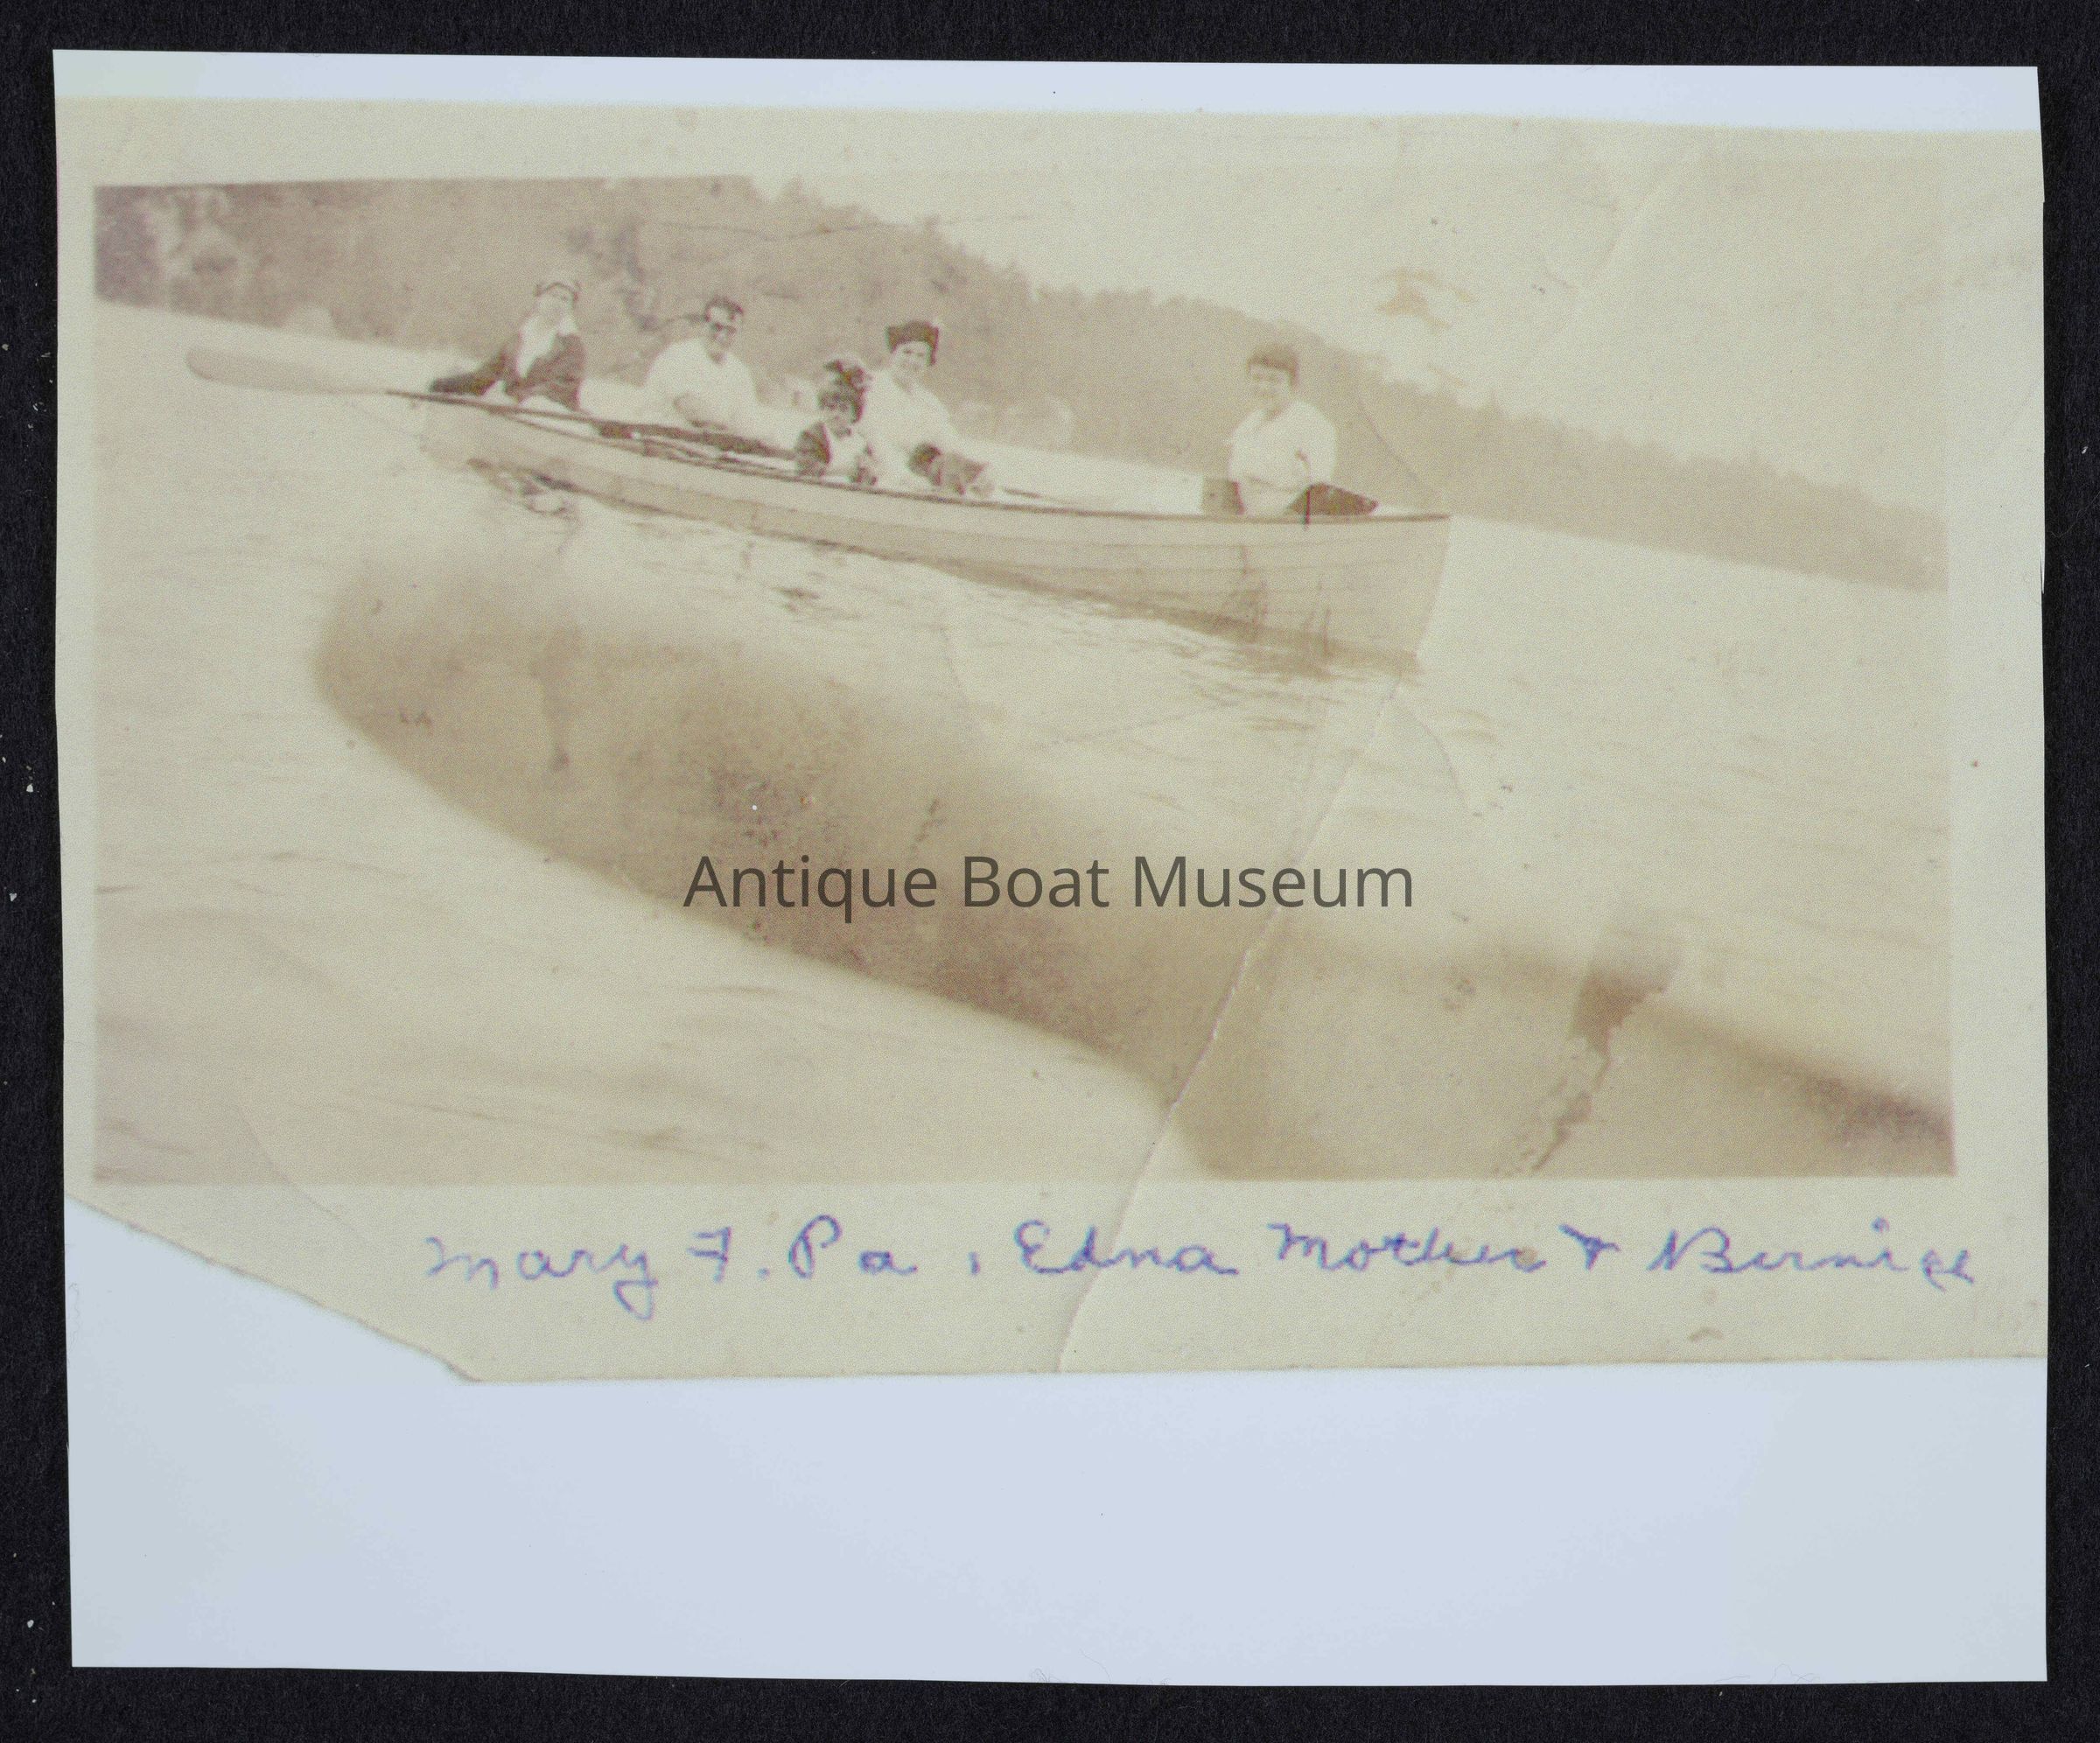 Antique Boat Museum
Mary F. Pa, Edna Mother & Bernice